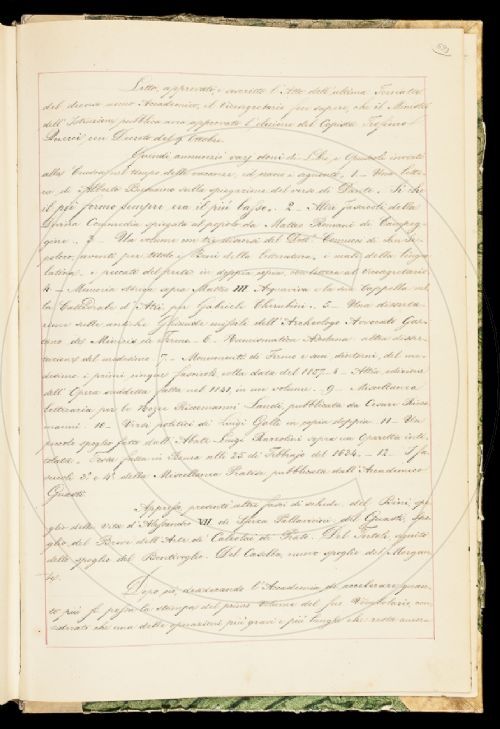 Letto, approvato, e corretto l'Atto dell'ultima Tornata
del decorso anno Accademico, il Vicesegretario fece sapere, che il Ministro
dell'Istruzione pubblica aveva approvato l'elezione del Capista Trofimo
con Decreto del 9 Ottobre.
Quindi annunziò vary doni di Libri e Opuscoli inviati
alla Crusca nel tempo delle vacanze, ed erano i seguenti. 1 - Una Lette-
ra di Alberto Buscaino sulla spiegazione del verso di Dante. Si che
il piè fermo sempre era il più basso. - 2 - Altri fascicoli della
Divina Commedia spiegata al popolo da Matteo Romani di Campeg-
gine. - 3 - Un volume con tre discorsi del Dott.
aventi per titolo i Beni della Letteratura, i mali della lingua
latina, e peccati del
4 - Memoria storica sopra Matteo III Aquaviva e la sua Cappella nel-
la Cattedrale d'Atri, per Gabriele Cherubini. 5 - Una disserta-
zione sulle antiche dell'Archeologo Avvocato Gae-
tano De Minicis di Fermo. 6 - Numismatica Ascolana altra disser-
tazione del medesimo. 7 - Monumenti di Fermo e suoi dintorni, del me-
desimo i primi cinque fascicoli colla data del 1857. - 8 - Altra edizione
dell'Opera suddetta fatta nel 1841, in un volume. - 9 - Miscellanea
letteraria per le Nozze Riccomanni Landi, pubblicata da Cesare Ricco-
manni. - 10 - Versi politici di Luigi Gallo in copia doppia. 11 - Un
piccolo spoglio fatto dall'Abate Luigi Barsolini sopra un Operetta inti-
tolata, Feste fatta in Pesaro alli 25 di Febbrajo del 1634. - 12 - I fa-
scicoli 3.° e 4.° della Miscellanea Pratese pubblicata dall'Accademico
Guasti.
Appresso, presentati altri fasci di schede, del Bini, spo-
glio della vita d'Alessandro VII di Sforza Pallavicino, del Guasti, spo-
glio del Breve dell'Arte di Calzolai di Prato. Del Tortoli, seguito
dello spoglio del Bentivoglio. Del Casella, nuovo spoglio del Morgan-
te.
Dopo ciò, desiderando l'Accademia di accelerare quan-
to più si possa la stampa del primo volume del suo Vocabolario, con-
siderato che una delle operazioni più gravi e più lunghe che resta ancora